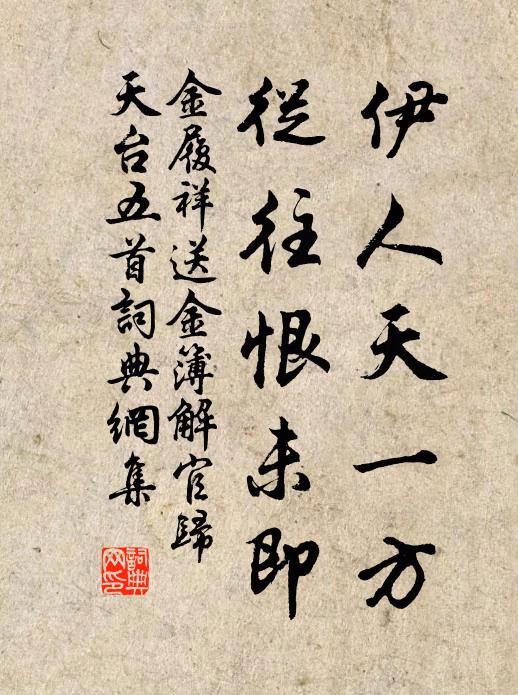 伊人天一方
從往恨未即
金履祥送金簿解官歸
天台五首詞典網集
詞典網印